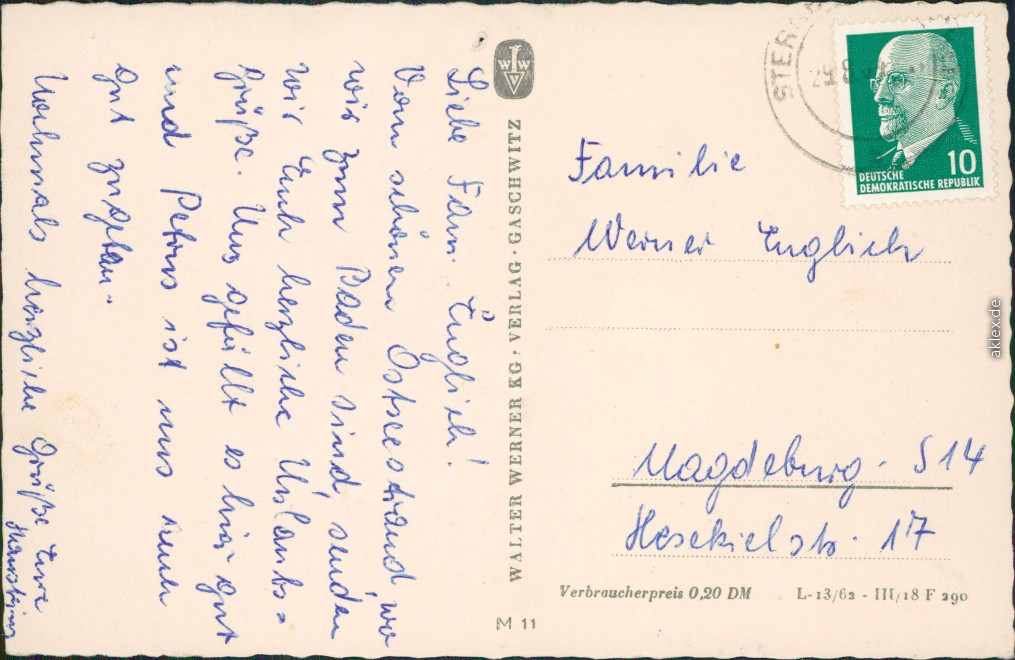 Liebe Fam. Englich!
Vom schönen Ostseestrand wo
wir zum Baden sind, senden
wir Euch herzliche Urlaubs=
grüße. Uns gefällt es hier gut
und Petrus ist uns auch
gut
Nochmals herzliche Grüße Eure
WWV
WALTER WERNER KG · VERLAG · GASCHWITZ
M 11
STER
29.8.
DEUTSCHE
DEMOKRATISCHE REPUBLIK
10
Familie
Werner Englich
Magdeburg - S 14
Hesekielstr. 17
Verbraucherpreis 0,20 DM L-13/62 - III/18 F 290
aklex.de